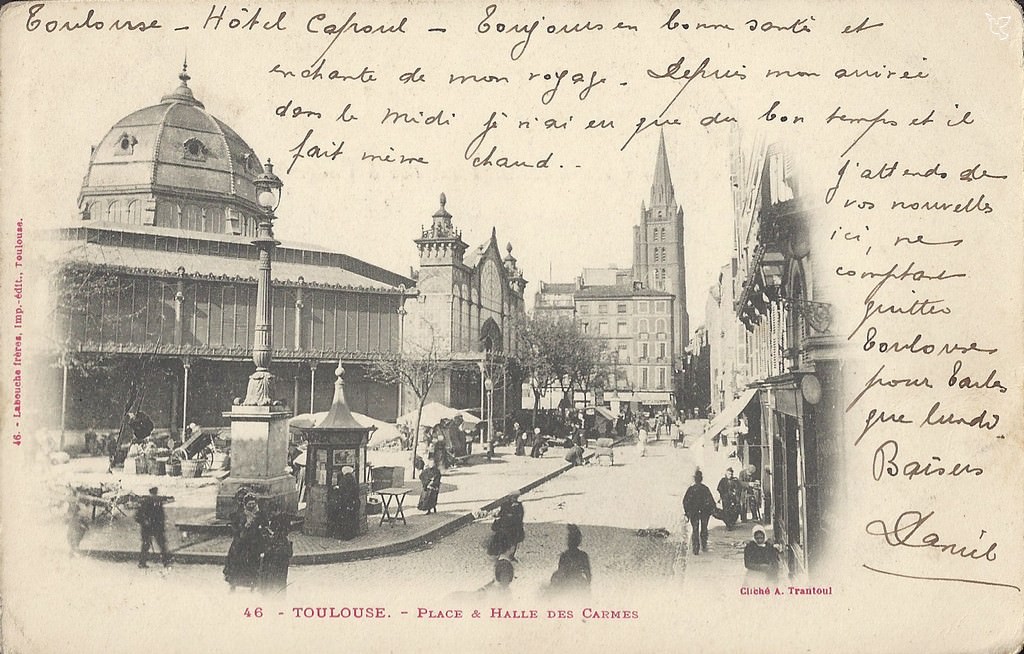 Toulouse - Hôtel Capoul - Toujours en bonne santé et
enchanté de mon voyage. Depuis mon arrivée
dans le midi je n'ai eu que du bon temps et il
fait même chaud..
J'attends de
vos nouvelles
ici, ne
comptant
quitter
Toulouse
pour Tarbes
que lundi.
Baisers
Daniel
46. - Labouche frères, Imp.-édit., Toulouse.
Cliché A. Trantoul
46 - TOULOUSE. - PLACE & HALLE DES CARMES